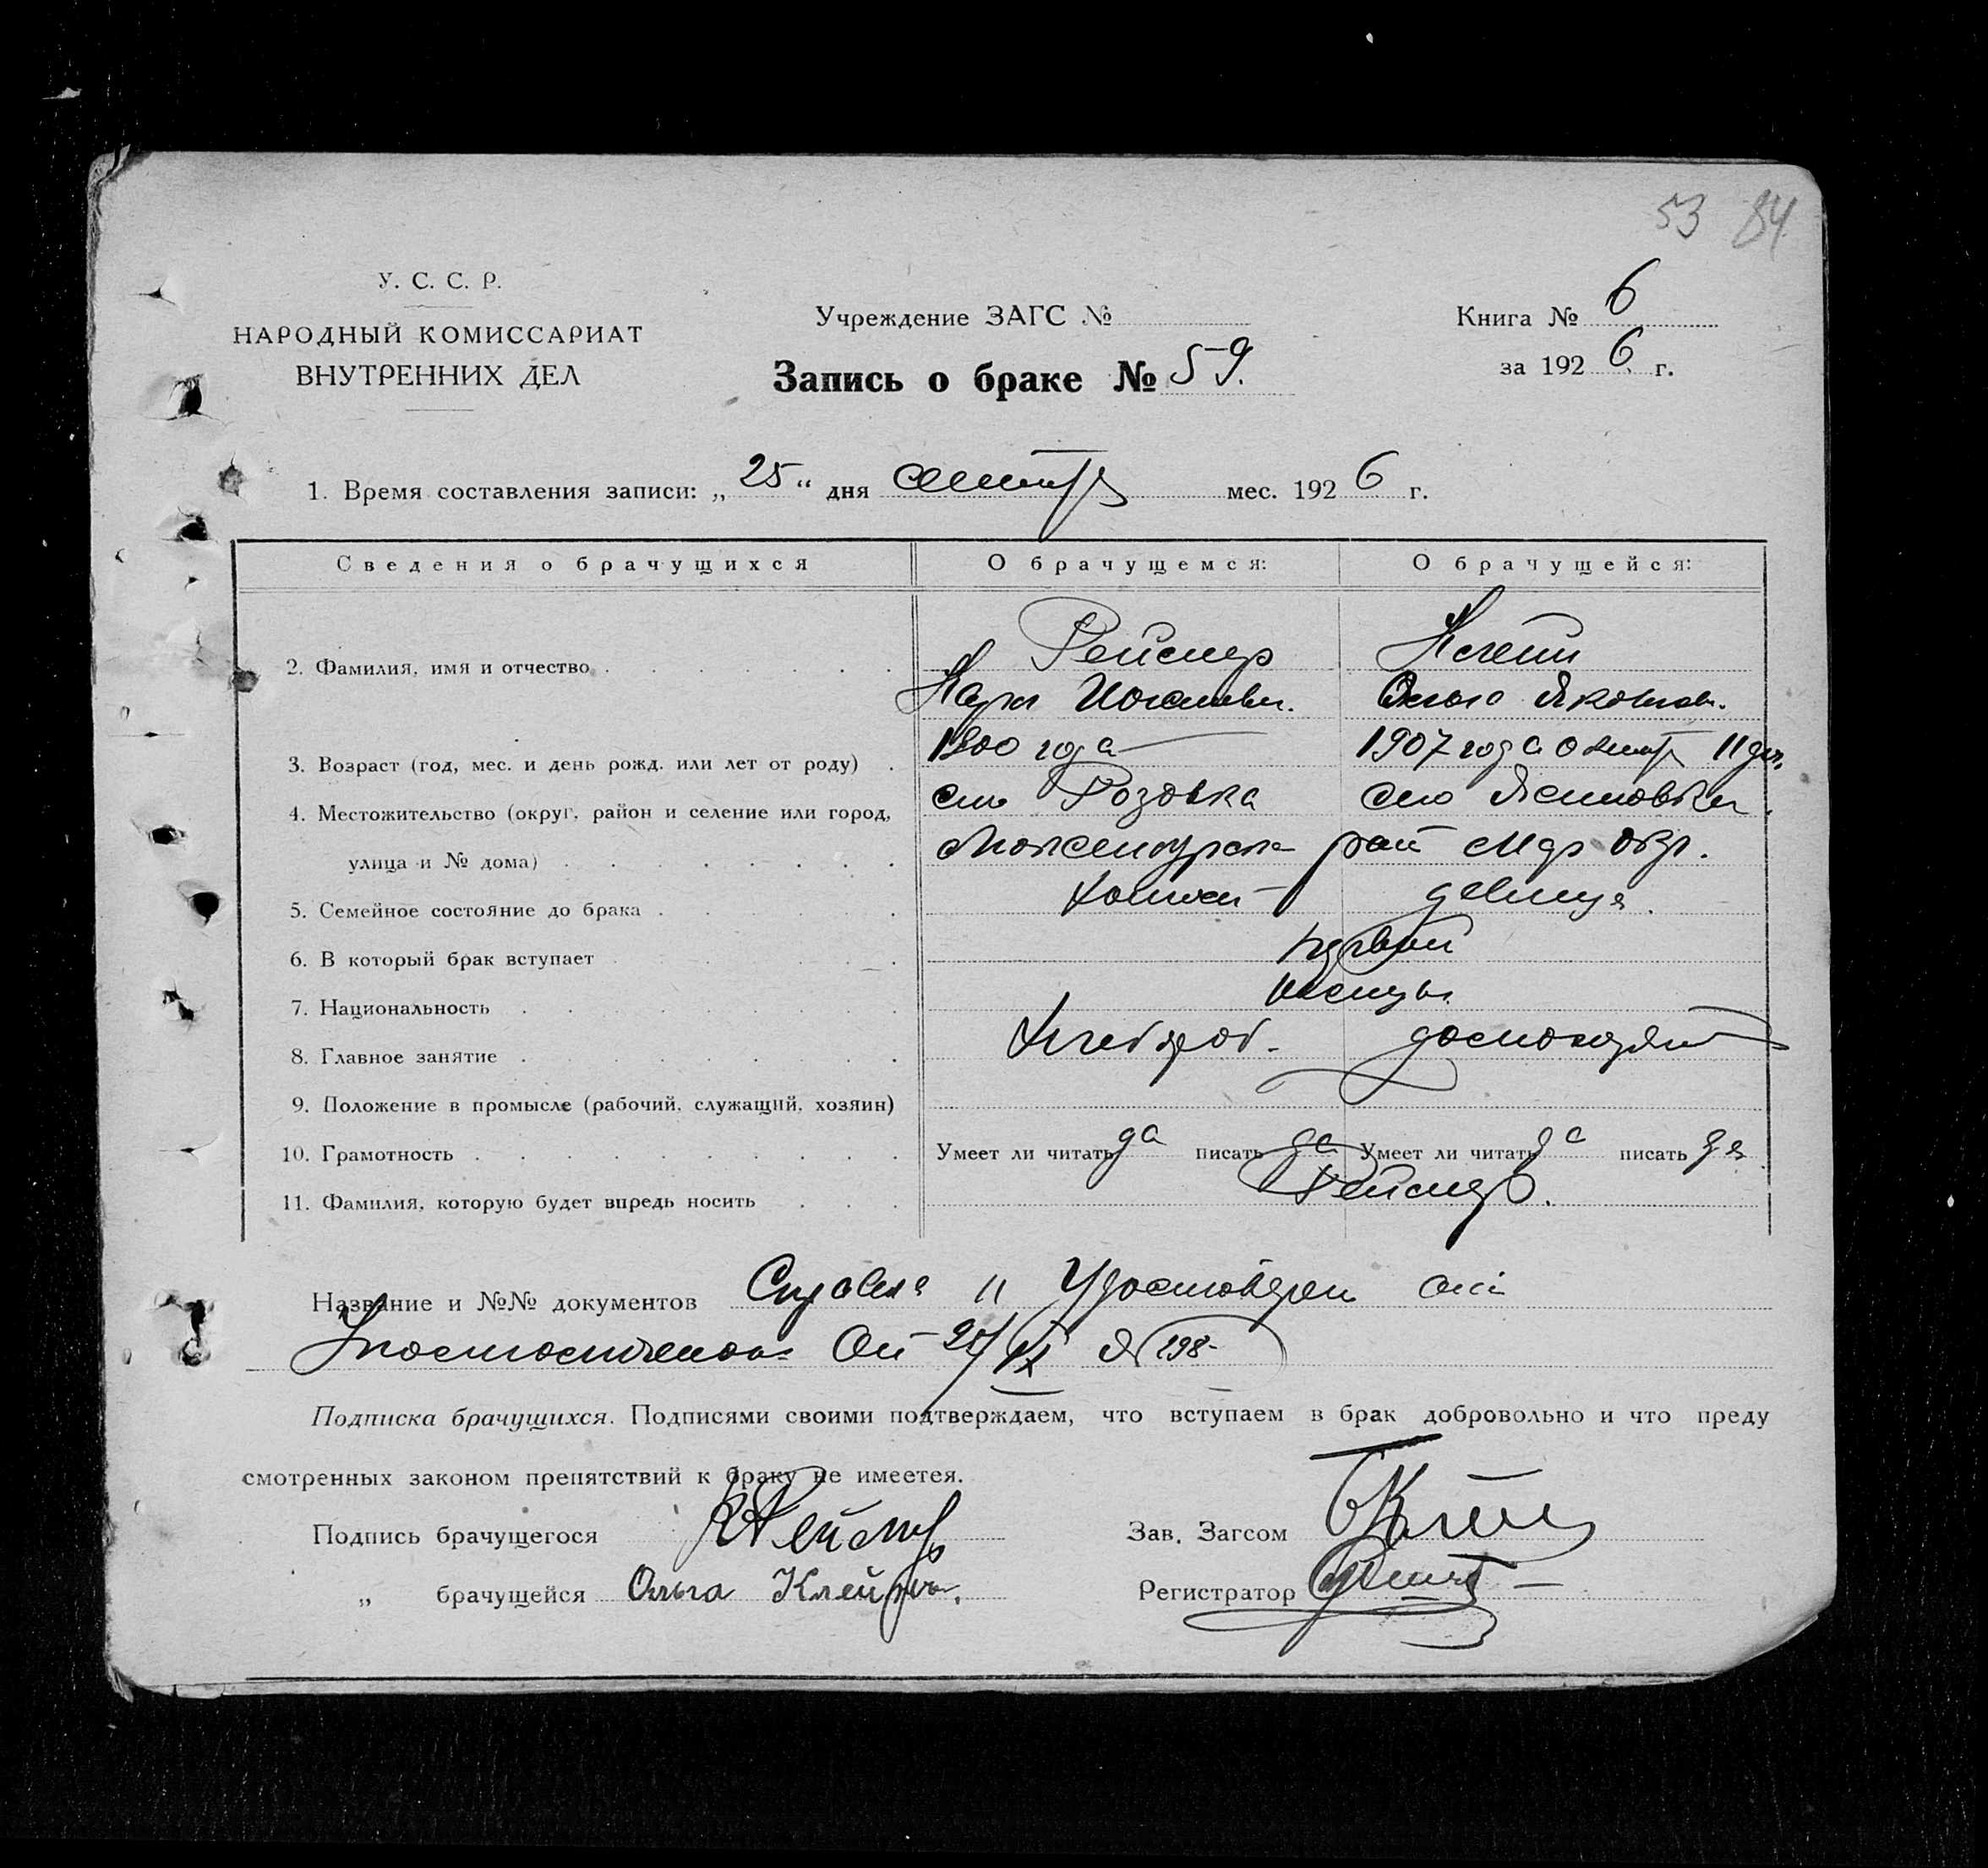 53 84
У. С. С. Р.
НАРОДНЫЙ КОМИССАРИАТ
ВНУТРЕННИХ ДЕЛ
Учреждение ЗАГС №
Запись о браке № 59.
Книга № 6
за 192 6 г.
1. Время составления записи: „ 25 “ дня сентбр мес. 192 6 г.
Сведения о брачущихся О брачущемся: О брачущейся:
2. Фамилия, имя и отчество Рейснер Клейн
Карл Ольга Яковлев.
3. Возраст (год, мес. и день рожд. или лет от роду) 1900 года 1907 года 11 дня
4. Местожительство (округ, район и селение или город, село Розовка село
улица и № дома) рай Мар окр.
5. Семейное состояние до брака холост девица.
6. В который брак вступает первый
7. Национальность немцы.
8. Главное занятие Хлебороб. домохозяйк
9. Положение в промысле (рабочий, служащий, хозяин)
10. Грамотность Умеет ли читать да писать да Умеет ли читать да писать да
11. Фамилия, которую будет впредь носить Рейснер.
Название и №№ документов Справка и Удостоверен
От IX № 198-
Подписка брачущихся. Подписями своими подтверждаем, что вступаем в брак добровольно и что преду
смотренных законом препятствий к браку не имеетея.
Подпись брачущегося Рейснер
„ брачущейся Ольга Клейн
Зав. Загсом
Регистратор